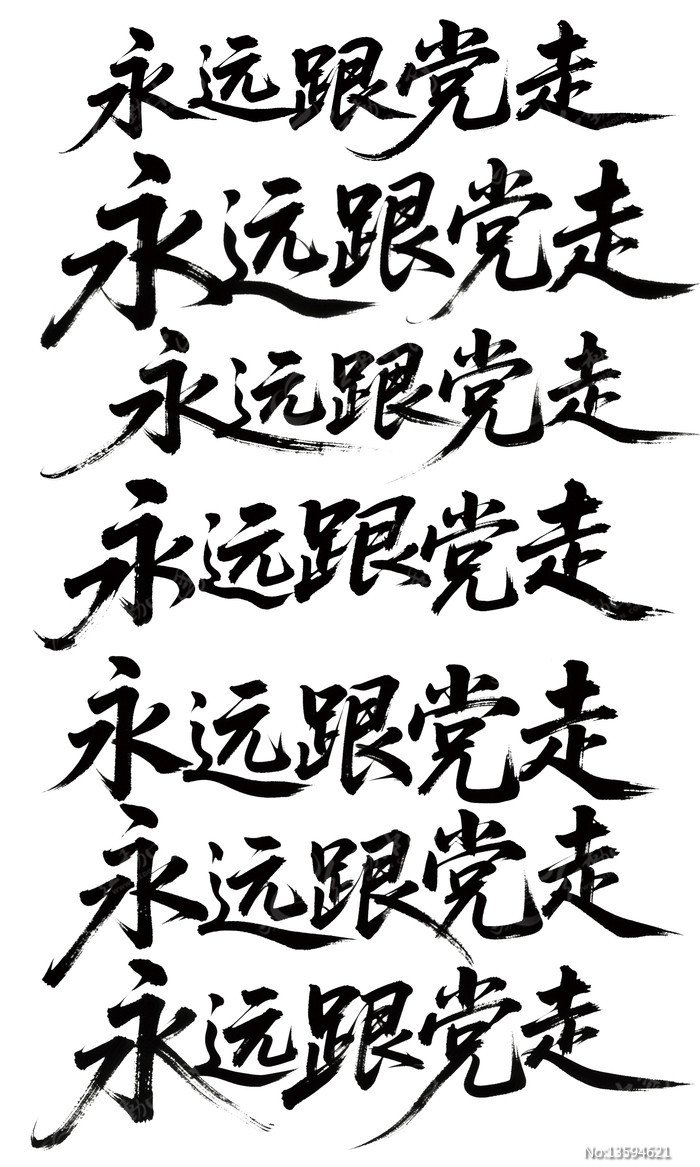 永远跟党走
永远跟党走
永远跟党走
永远跟党走
永远跟党走
永远跟党走
永远跟党走
No:13594621